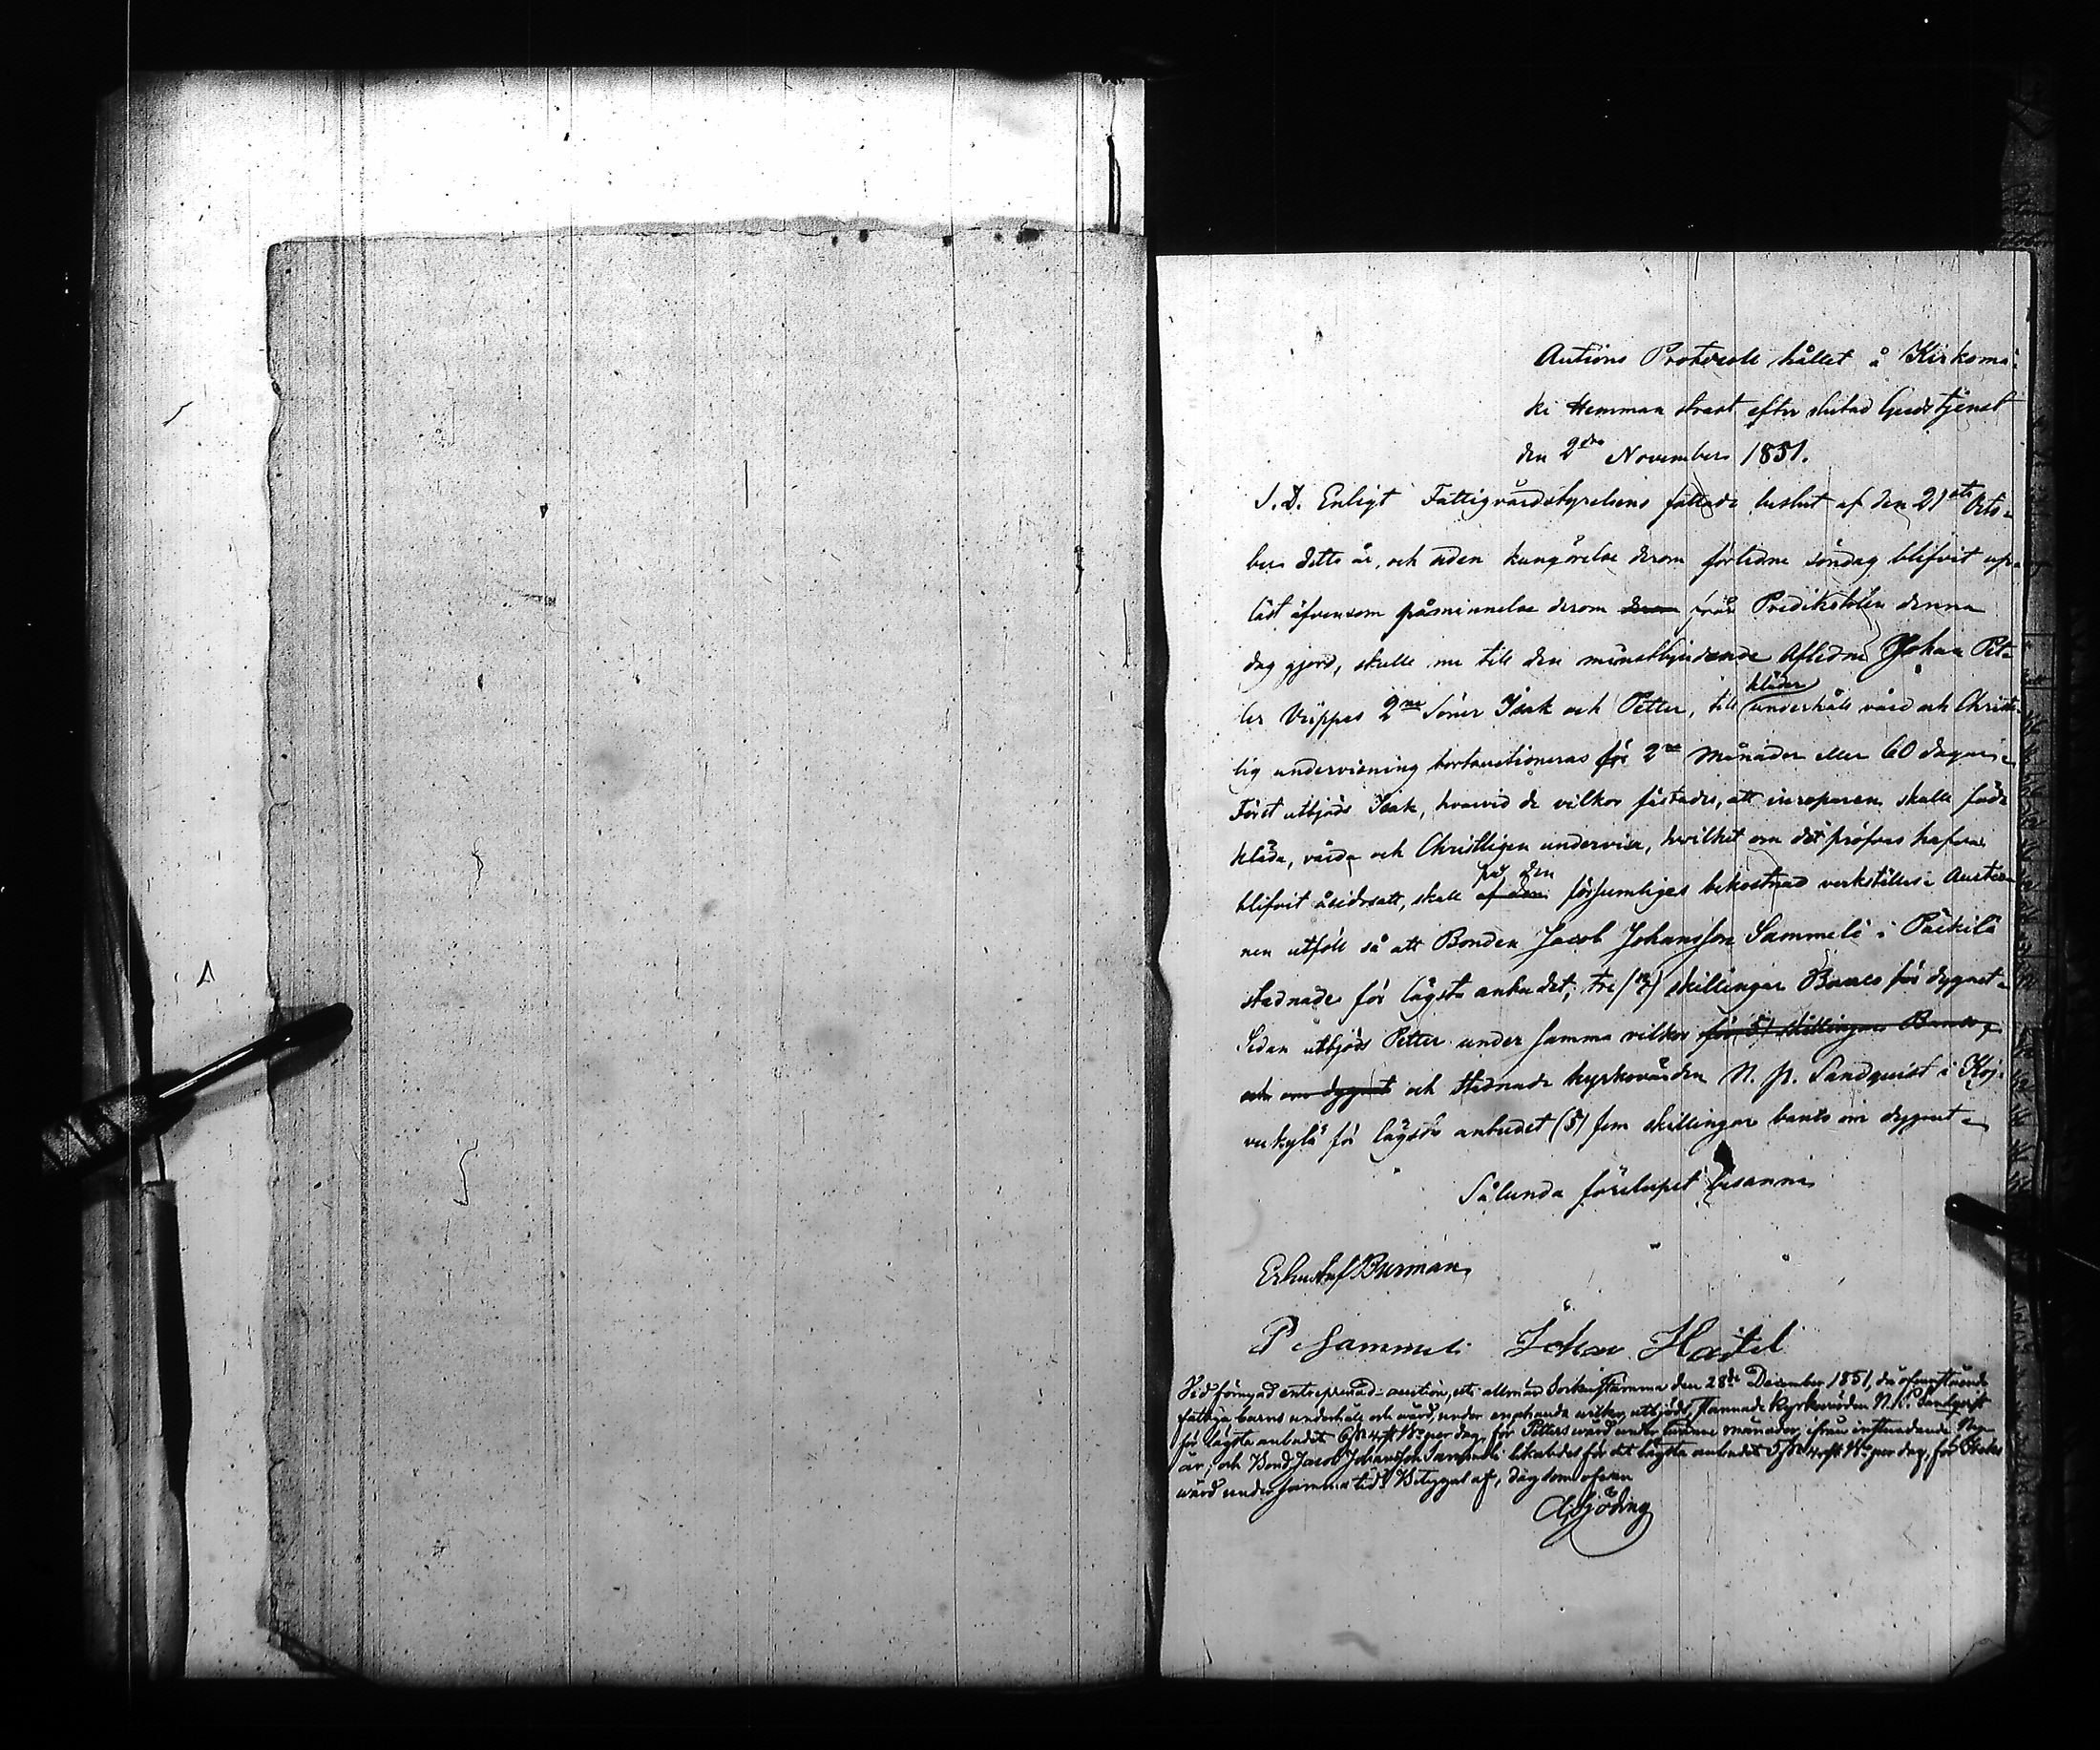 Auctions Protocoll hållet å Kirkomä-
ki Hemman straxt efter slutad Gudstjenst
den 2dra November 1851.
S. D. Enligt Fattigvårdstyrelsens fattade beslut af den 21sta Octo-
ber detta år, och sedan kungörelse derom förledne söndag blifvit upp-
läst äfvensom påminnelse derom derom från Predikstolen denna
dag gjord, skulle nu till den minstbjudande Afledne Johan Pet-
ter 2ne Söner Isak och Petter, till kläder underhåll vård och Christ-
lig undervisning bortauctioneras för 2ne Månader eller 60 dagar
Först utbjöds Isak, hvarvid de vilkor fästades, att inroparen skulle föda
kläda, vårda och Christligen undervisa, hvilket om det pröfvas hafva
blifvit åsidosatt, skall af den på den försumliges bekostnad verkställas Auctio-
nen utföll så att Bonden Jacob Johansson Sammeli i Päckilä
stadnade för lägsta anbudet, tre skillingar Banco för dygnet
Sedan utbjöds Petter under samma vilkor för 5) skillingar Banco
och om dygnet och stadnade kyrkovärden N. P. Sandquist i Koj-
vukylä för lägsta anbudet (5) fem skillingar banco om dygnet
Sålunda förelupet besanna
Burman
P Sammeli Johan
Vid förnyad entreprenad-auction, vid allmän Sockenstämma den 28de December 1851, då ofvanstående
fattiga barns underhåll och vård, under enahanda vilkor, utbjöds, stannade Kyrkovärden N. P. Sandqvist
för lägsta anbudet 6 per dag, för Petters vård under tvänne månader, ifrån instundande Ny-
år; och Bond. Jacob Johansson Sammeli likaledes för det lägsta anbudet 5 per dag, för Isaks
vård under samma tid. Betygat af, dag som ofvan